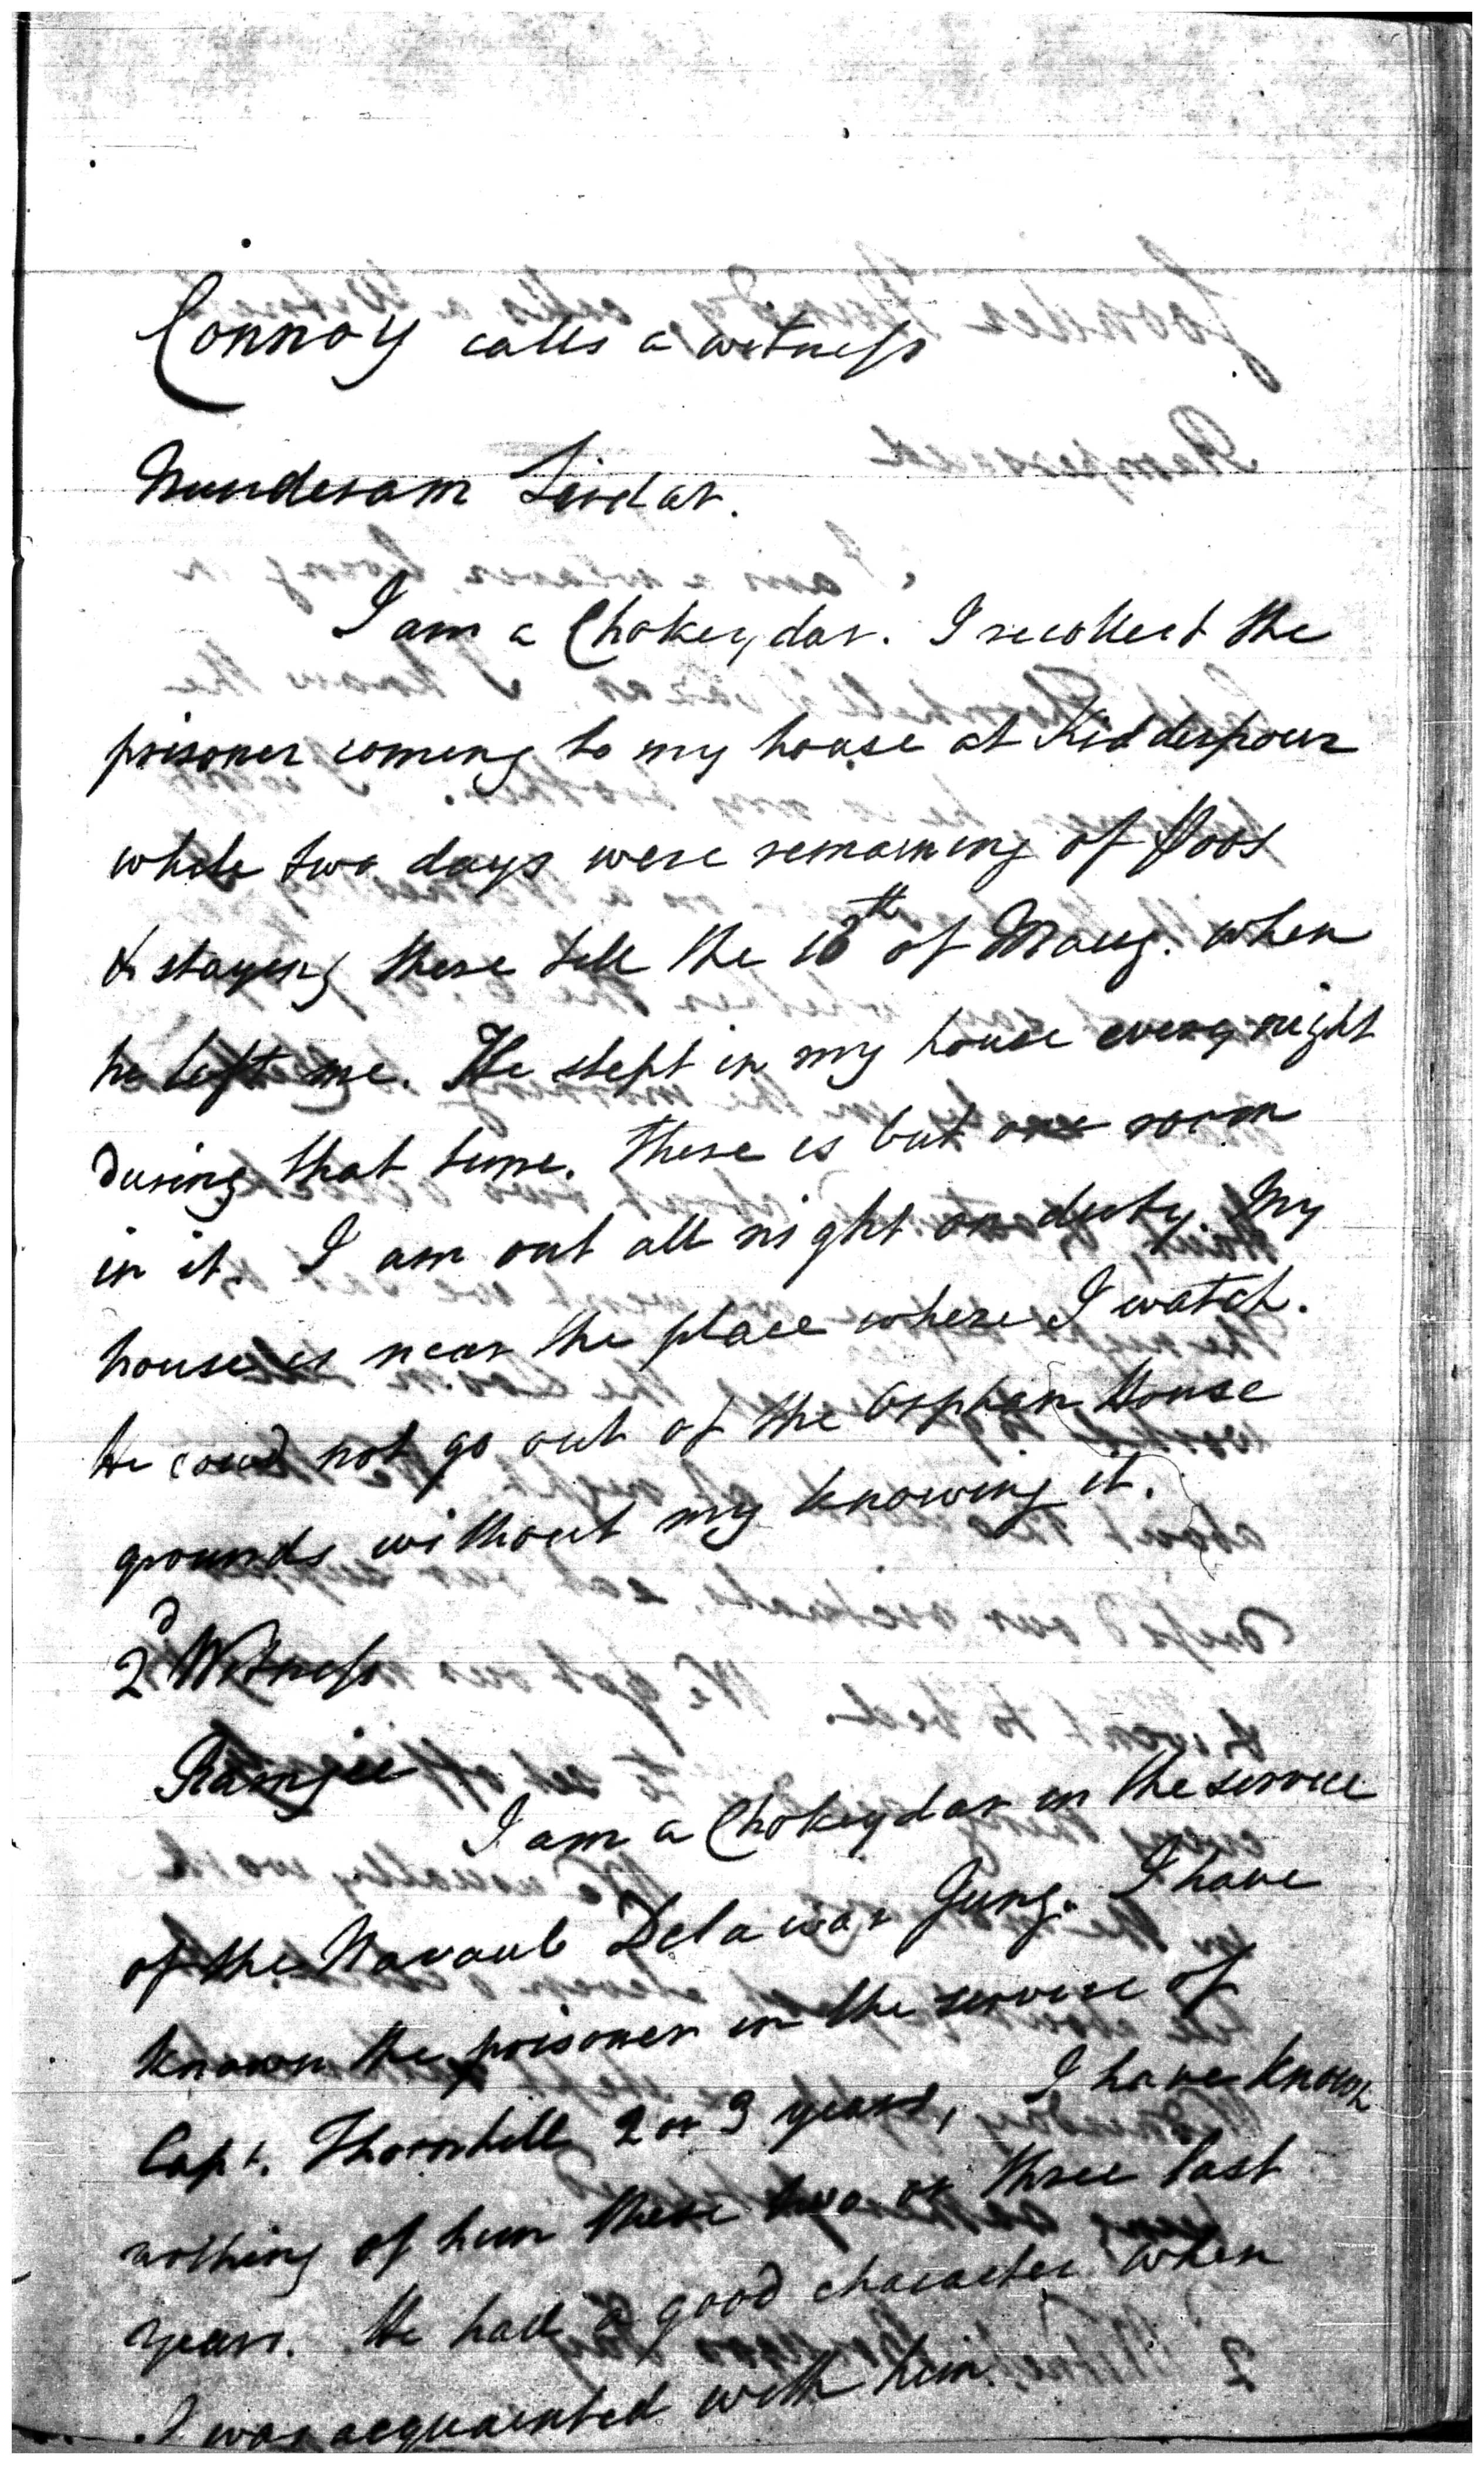 Connoy calls a witness
Nunderam Sirdar.
I am a Chokeydar. I recollect the
prisoner coming to my house at Kidderpour
while two days were remaining of Poos
& staying there till the 10th of Maug. when
he left me. He slept in my house every night
during that time. There is but one room
in it. I am out all night on duty. My
house is near the place where I watch.
He coud not go out of the Orphan House
grounds without my knowing it.
2d Witness
Ramjee
I am a Chokeydar in the service
of the Navaub Delawar Jung. I have
known the prisoner in the service of
Capt. Thornhill 2 or 3 years, I have known
nothing of him these two or three last
years. He had a good character when
I was acquainted with him.